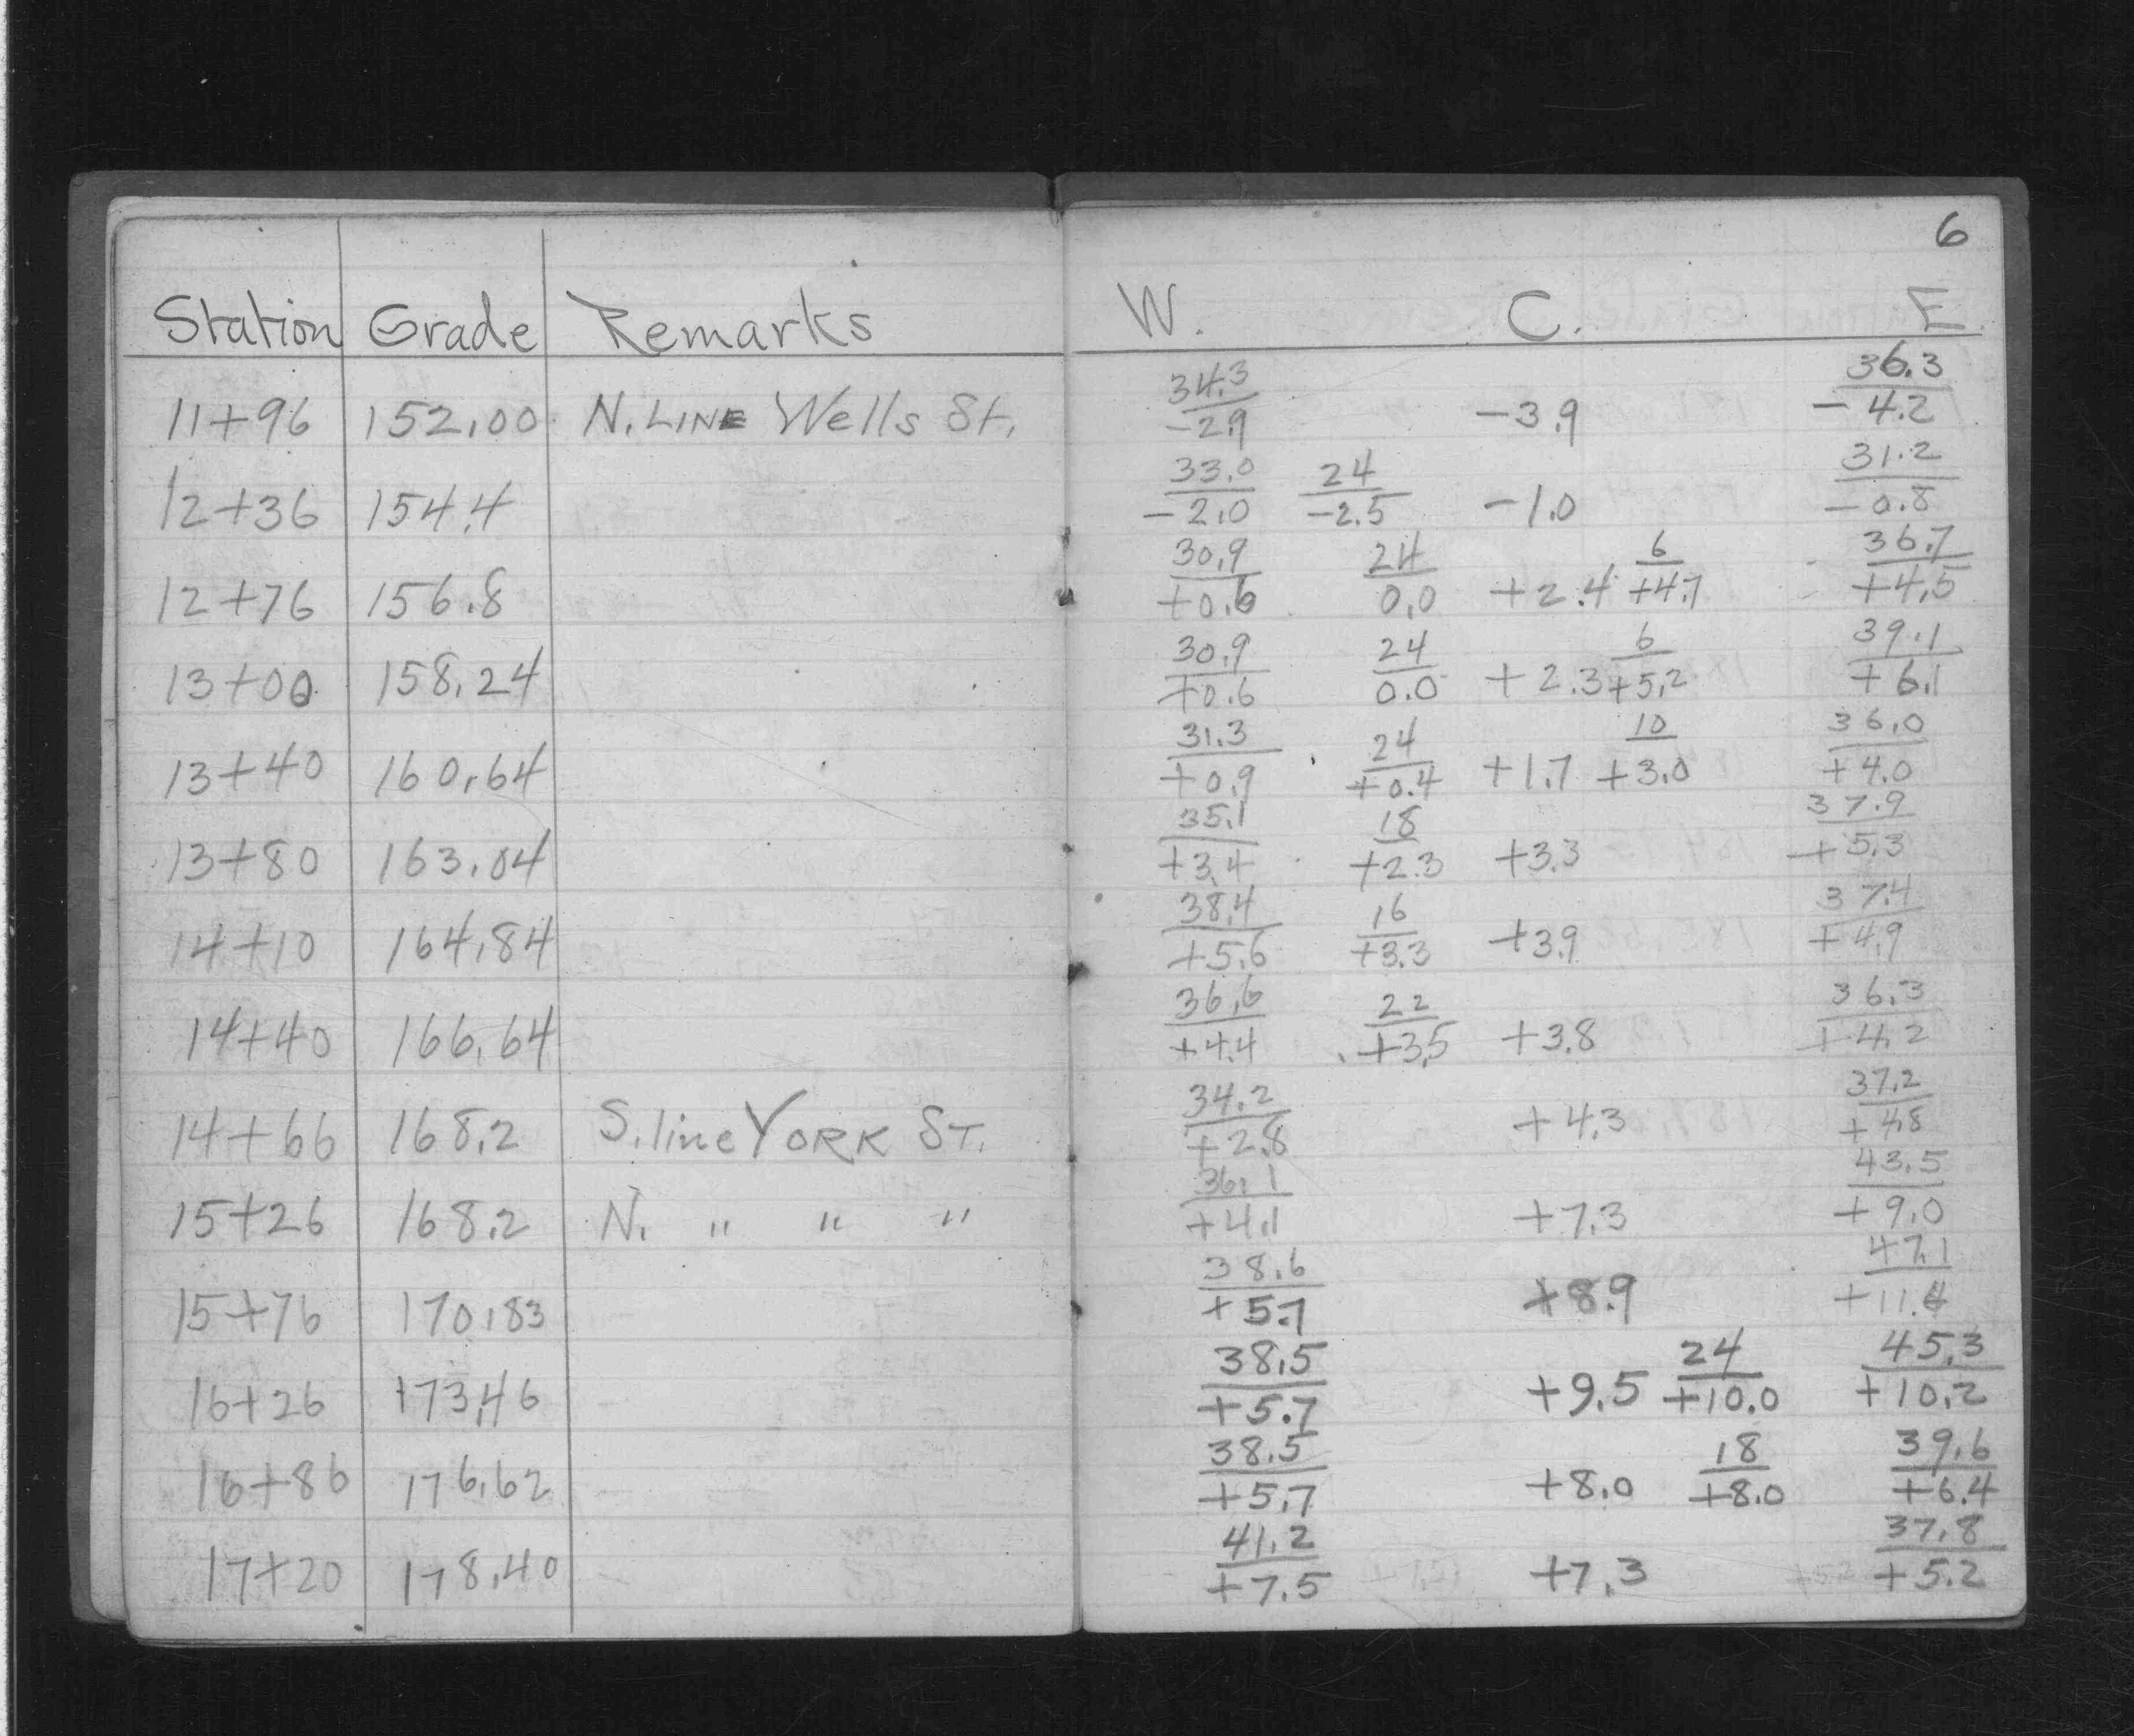 6
Station Grade Remarks W. C. E.
34.3 36.3
11+96 152.00 N. LINE Wells St. -2.9 -3.9 -4.2
33.0 24 31.2
12+36 154.4 -2.0 -2.5 -1.0 -0.8
30.9 24 6 36.7
12+76 156.8 +0.6 0.0 +2.4 +4.7 +4.5
30.9 24 6 39.1
13+00 158.24 +0.6 0.0 +2.3 +5.2 +6.1
31.3 24 10 36.0
13+40 160.64 +0.9 +0.4 +1.7 +3.0 +4.0
35.1 18 37.9
13+80 163.04 +3.4 +2.3 +3.3 +5.3
38.4 16 37.4
14+10 164.84 +5.6 +3.3 +3.9 +4.9
36.6 22 36.3
14+40 166.64 +4.4 +3.5 +3.8 +4.2
34.2 37.2
14+66 168.2 S. line YORK ST. +2.8 +4.3 +4.8
36.1 43.5
15+26 168.2 N. " " " +4.1 +7.3 +9.0
38.6 47.1
15+76 170.83 +5.7 +8.9 +11.4
38.5 24 45.3
16+26 173.46 +5.7 +9.5 +10.0 +10.2
38.5 18 39.6
16+86 176.62 +5.7 +8.0 +8.0 +6.4
41.2 37.8
17+20 178.40 +7.5 +7.3 +5.2